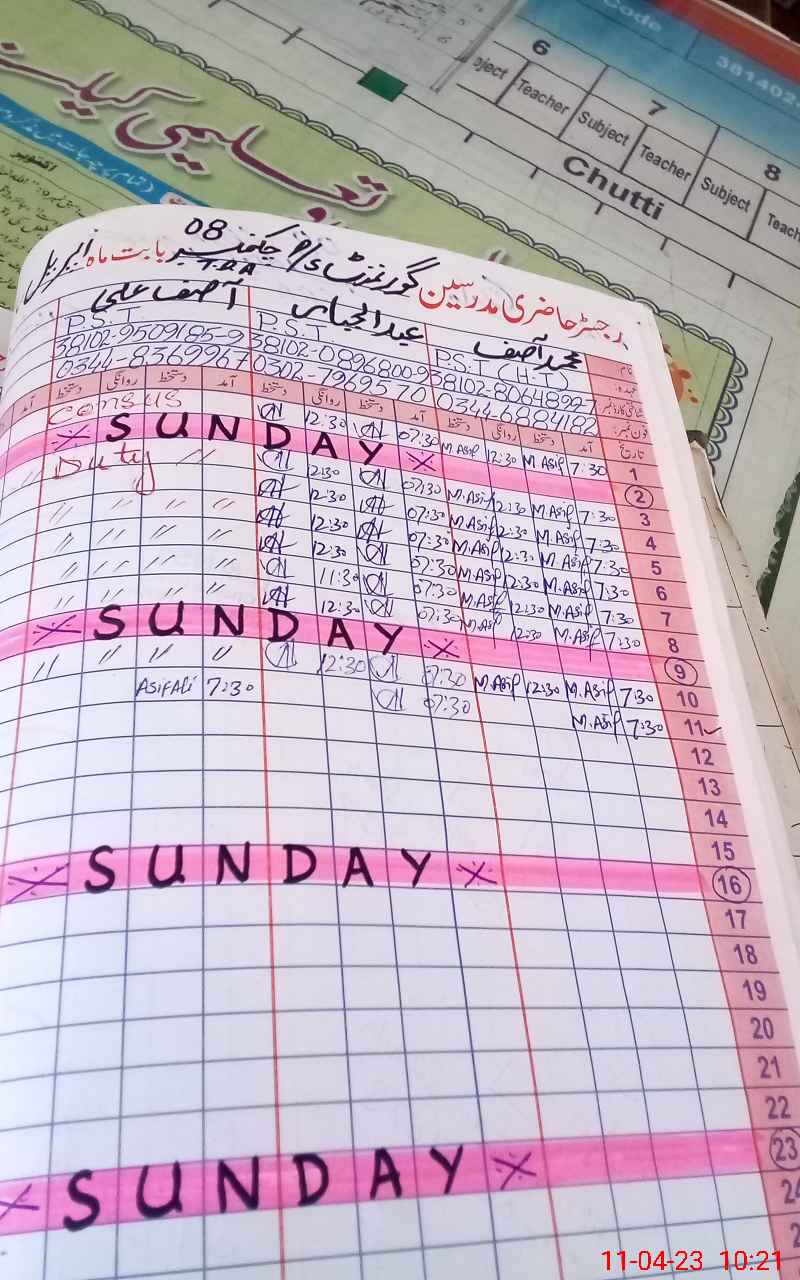 Code
381402
6
7
8
Subject
Teacher
Subject
Teacher
Subject
Chutti
تعلیمی کیلنڈر
رجسٹر حاضری مدرسین گورنمنٹ P/S چکنمبر 08 بابت ماہ اپریل
T.D.A
محمد آصف عبدالجبار آصف علی
P.S.T (H.T) P.S.T. P.S.T
38102-8064899-7 38102-0896800-9 38102-9509185-9
0344-6884182 0302-7969570 0344-8369967
تاریخ آمد دستخط روانگی دستخط آمد دستخط روانگی دستخط آمد دستخط روانگی دستخط
1 7:30 M.Asif 12:30 M.Asif 07:30 12:30 Census
2 SUNDAY
3 7:30 M.Asif 12:30 M.Asif 07:30 12:30 〃 Duty
4 7:30 M.Asif 12:30 M.Asif 07:30 12:30 〃 〃 〃 〃
5 7:30 M.Asif 12:30 M.Asif 07:30 12:30 〃 〃 〃 〃
6 7:30 M.Asif 12:30 M.Asif 07:30 12:30 〃 〃 〃 〃
7 7:30 M.Asif 12:30 M.Asif 07:30 11:30 〃 〃 〃 〃
8 7:30 M.Asif 12:30 M.Asif 07:30 12:30 〃 〃 〃 〃
9 SUNDAY
10 7:30 M.Asif 12:30 M.Asif 07:30 12:30 〃 〃 〃 〃
11 7:30 M.Asif 07:30 7:30 Asif Ali
12
13
14
15
16 SUNDAY
17
18
19
20
21
22
23 SUNDAY
24
11-04-23 10:21